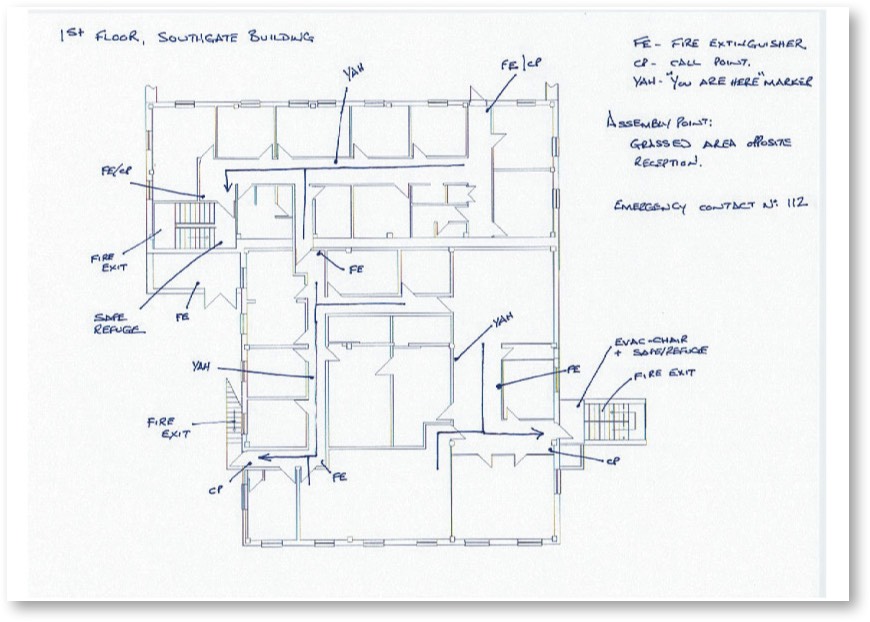 1ST FLOOR, SOUTHGATE BUILDING
FE - FIRE EXTINGUISHER
CP - CALL POINT.
YAH - "YOU ARE HERE" MARKER
ASSEMBLY POINT:
GRASSED AREA OPPOSITE
RECEPTION.
EMERGENCY CONTACT No: 112
YAH
FE/CP
FE/CP
FIRE
EXIT
SAFE
REFUGE
FE
FE
YAH
YAH
FE
EVAC-CHAIR
+ SAFE/REFUGE
FIRE EXIT
FIRE
EXIT
CP
FE
CP